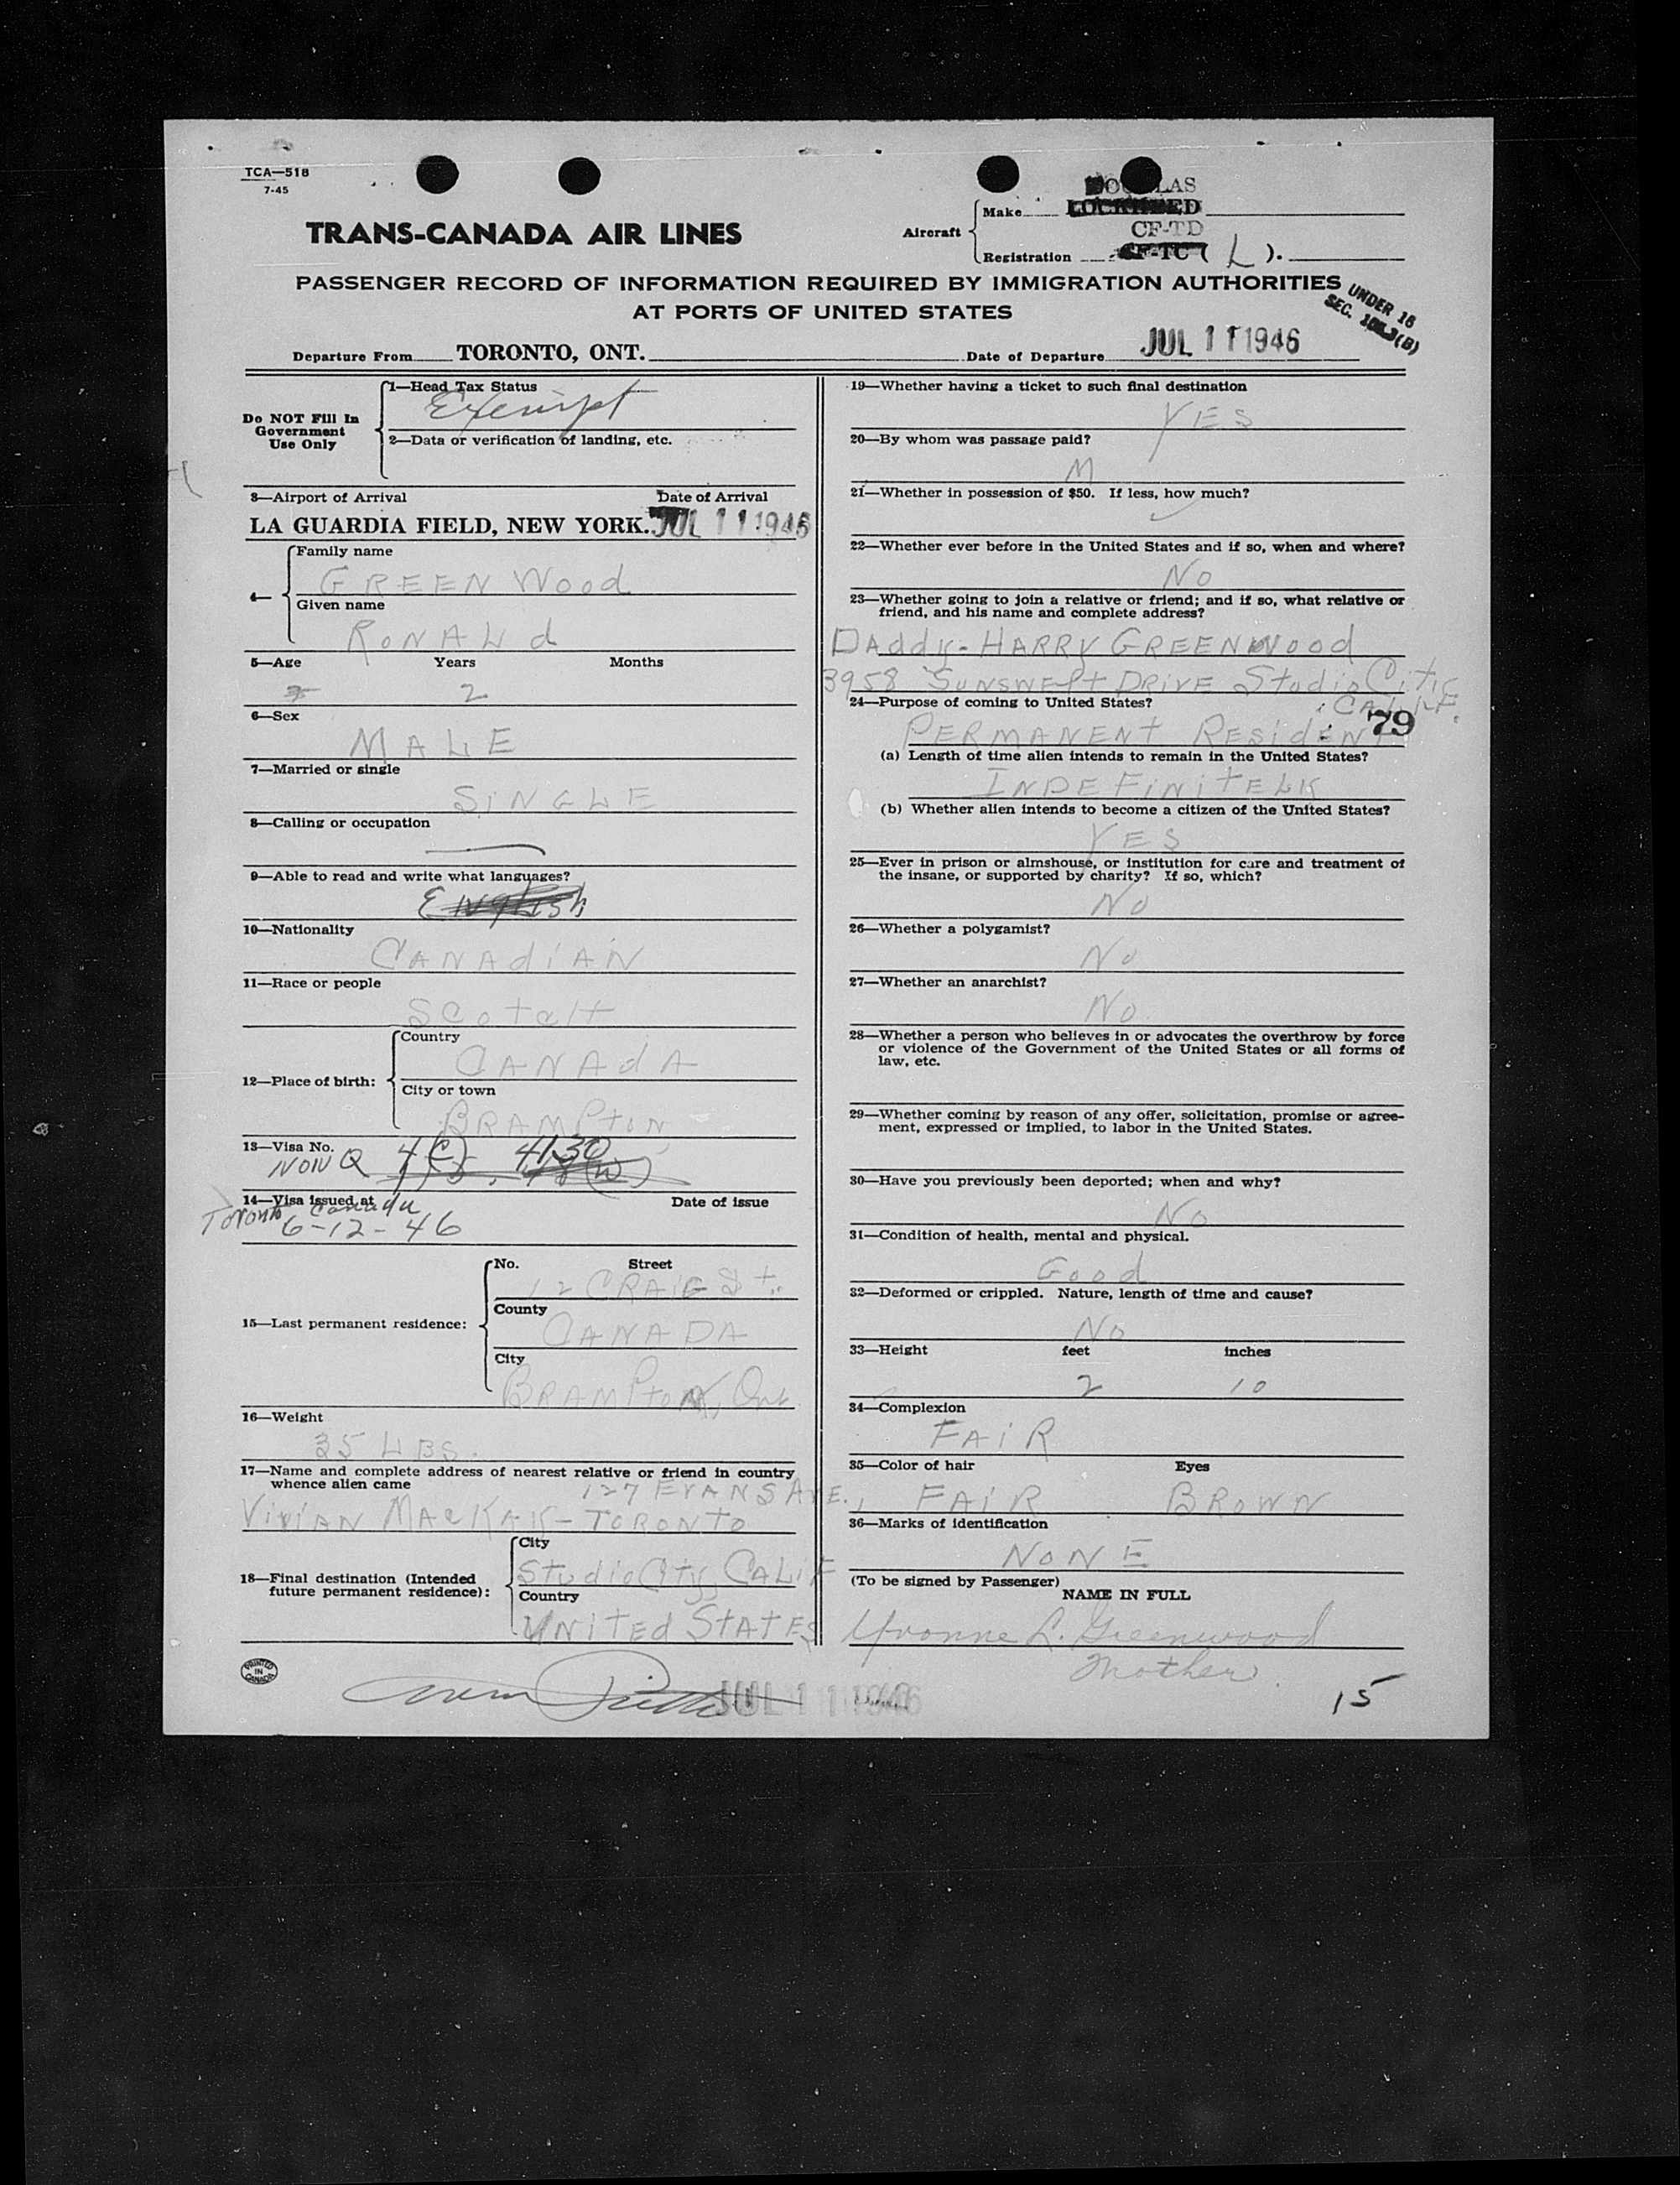 TCA—518
7-45
DOUGLAS
Make LOCKHEED
TRANS-CANADA AIR LINES
Aircraft
CF-TD
Registration CF-TC ( L ).
PASSENGER RECORD OF INFORMATION REQUIRED BY IMMIGRATION AUTHORITIES
AT PORTS OF UNITED STATES
UNDER 16
SEC.
Departure From TORONTO, ONT.
Date of Departure JUL 11 1946
Do NOT Fill In
Government
Use Only
1—Head Tax Status
Exempt
2—Data or verification of landing, etc.
3—Airport of Arrival Date of Arrival
LA GUARDIA FIELD, NEW YORK. JUL 11 1946
4—
Family name
GREENWood
Given name
RONALd
5—Age Years Months
2
6—Sex
MALE
7—Married or single
SiNGLE
8—Calling or occupation
9—Able to read and write what languages?
ENglish
10—Nationality
CANAdiAN
11—Race or people
Scotch
12—Place of birth:
Country
CANAdA
City or town
BRAMPtoN
13—Visa No.
NON Q 4(c) 4130
14—Visa issued at Date of issue
Toronto Canada
6-12-46
15—Last permanent residence:
No. Street
12 CRAIG St.
County
CANADA
City
BRAMPtoN, Ont
16—Weight
35 LBS.
17—Name and complete address of nearest relative or friend in country
whence alien came
127 EVANS AVE.,
ViviAN MacKAY- TORONTO
18—Final destination (Intended
future permanent residence):
City
Studio City, CALiF
Country
UNiTEd STATES
PRINTED
IN
CANADA
JUL 11 1946
19—Whether having a ticket to such final destination
YES
20—By whom was passage paid?
M
21—Whether in possession of $50. If less, how much?
22—Whether ever before in the United States and if so, when and where?
No
23—Whether going to join a relative or friend; and if so, what relative or
friend, and his name and complete address?
DAddy- HARRY GREENWOOd
3958 SUNSWEPt DRiVE Studio City
CALIF.
24—Purpose of coming to United States?
79
PERMANENt RESidENT
(a) Length of time alien intends to remain in the United States?
INDEFiNitELY
(b) Whether alien intends to become a citizen of the United States?
YES
25—Ever in prison or almshouse, or institution for care and treatment of
the insane, or supported by charity? If so, which?
No
26—Whether a polygamist?
No
27—Whether an anarchist?
No
28—Whether a person who believes in or advocates the overthrow by force
or violence of the Government of the United States or all forms of
law, etc.
29—Whether coming by reason of any offer, solicitation, promise or agree-
ment, expressed or implied, to labor in the United States.
30—Have you previously been deported; when and why?
No
31—Condition of health, mental and physical.
Good
32—Deformed or crippled. Nature, length of time and cause?
No
33—Height feet inches
2 10
34—Complexion
FAiR
35—Color of hair Eyes
FAiR BROWN
36—Marks of identification
NoNE
(To be signed by Passenger)
NAME IN FULL
Yvonne L. Greenwood
Mother
15